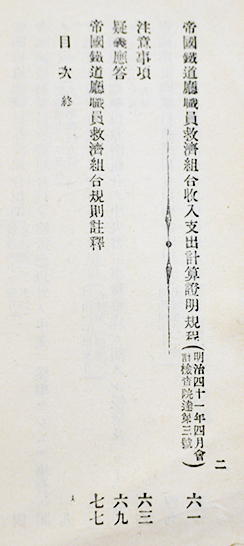 帝國鐵道廳職員救濟組合收入支出計算證明規程(明治四十一年四月會計檢查院達第三號) 六一
二
注意事項 六三
疑義應答 六九
帝國鐵道廳職員救濟組合規則註釋 七七
目次 終